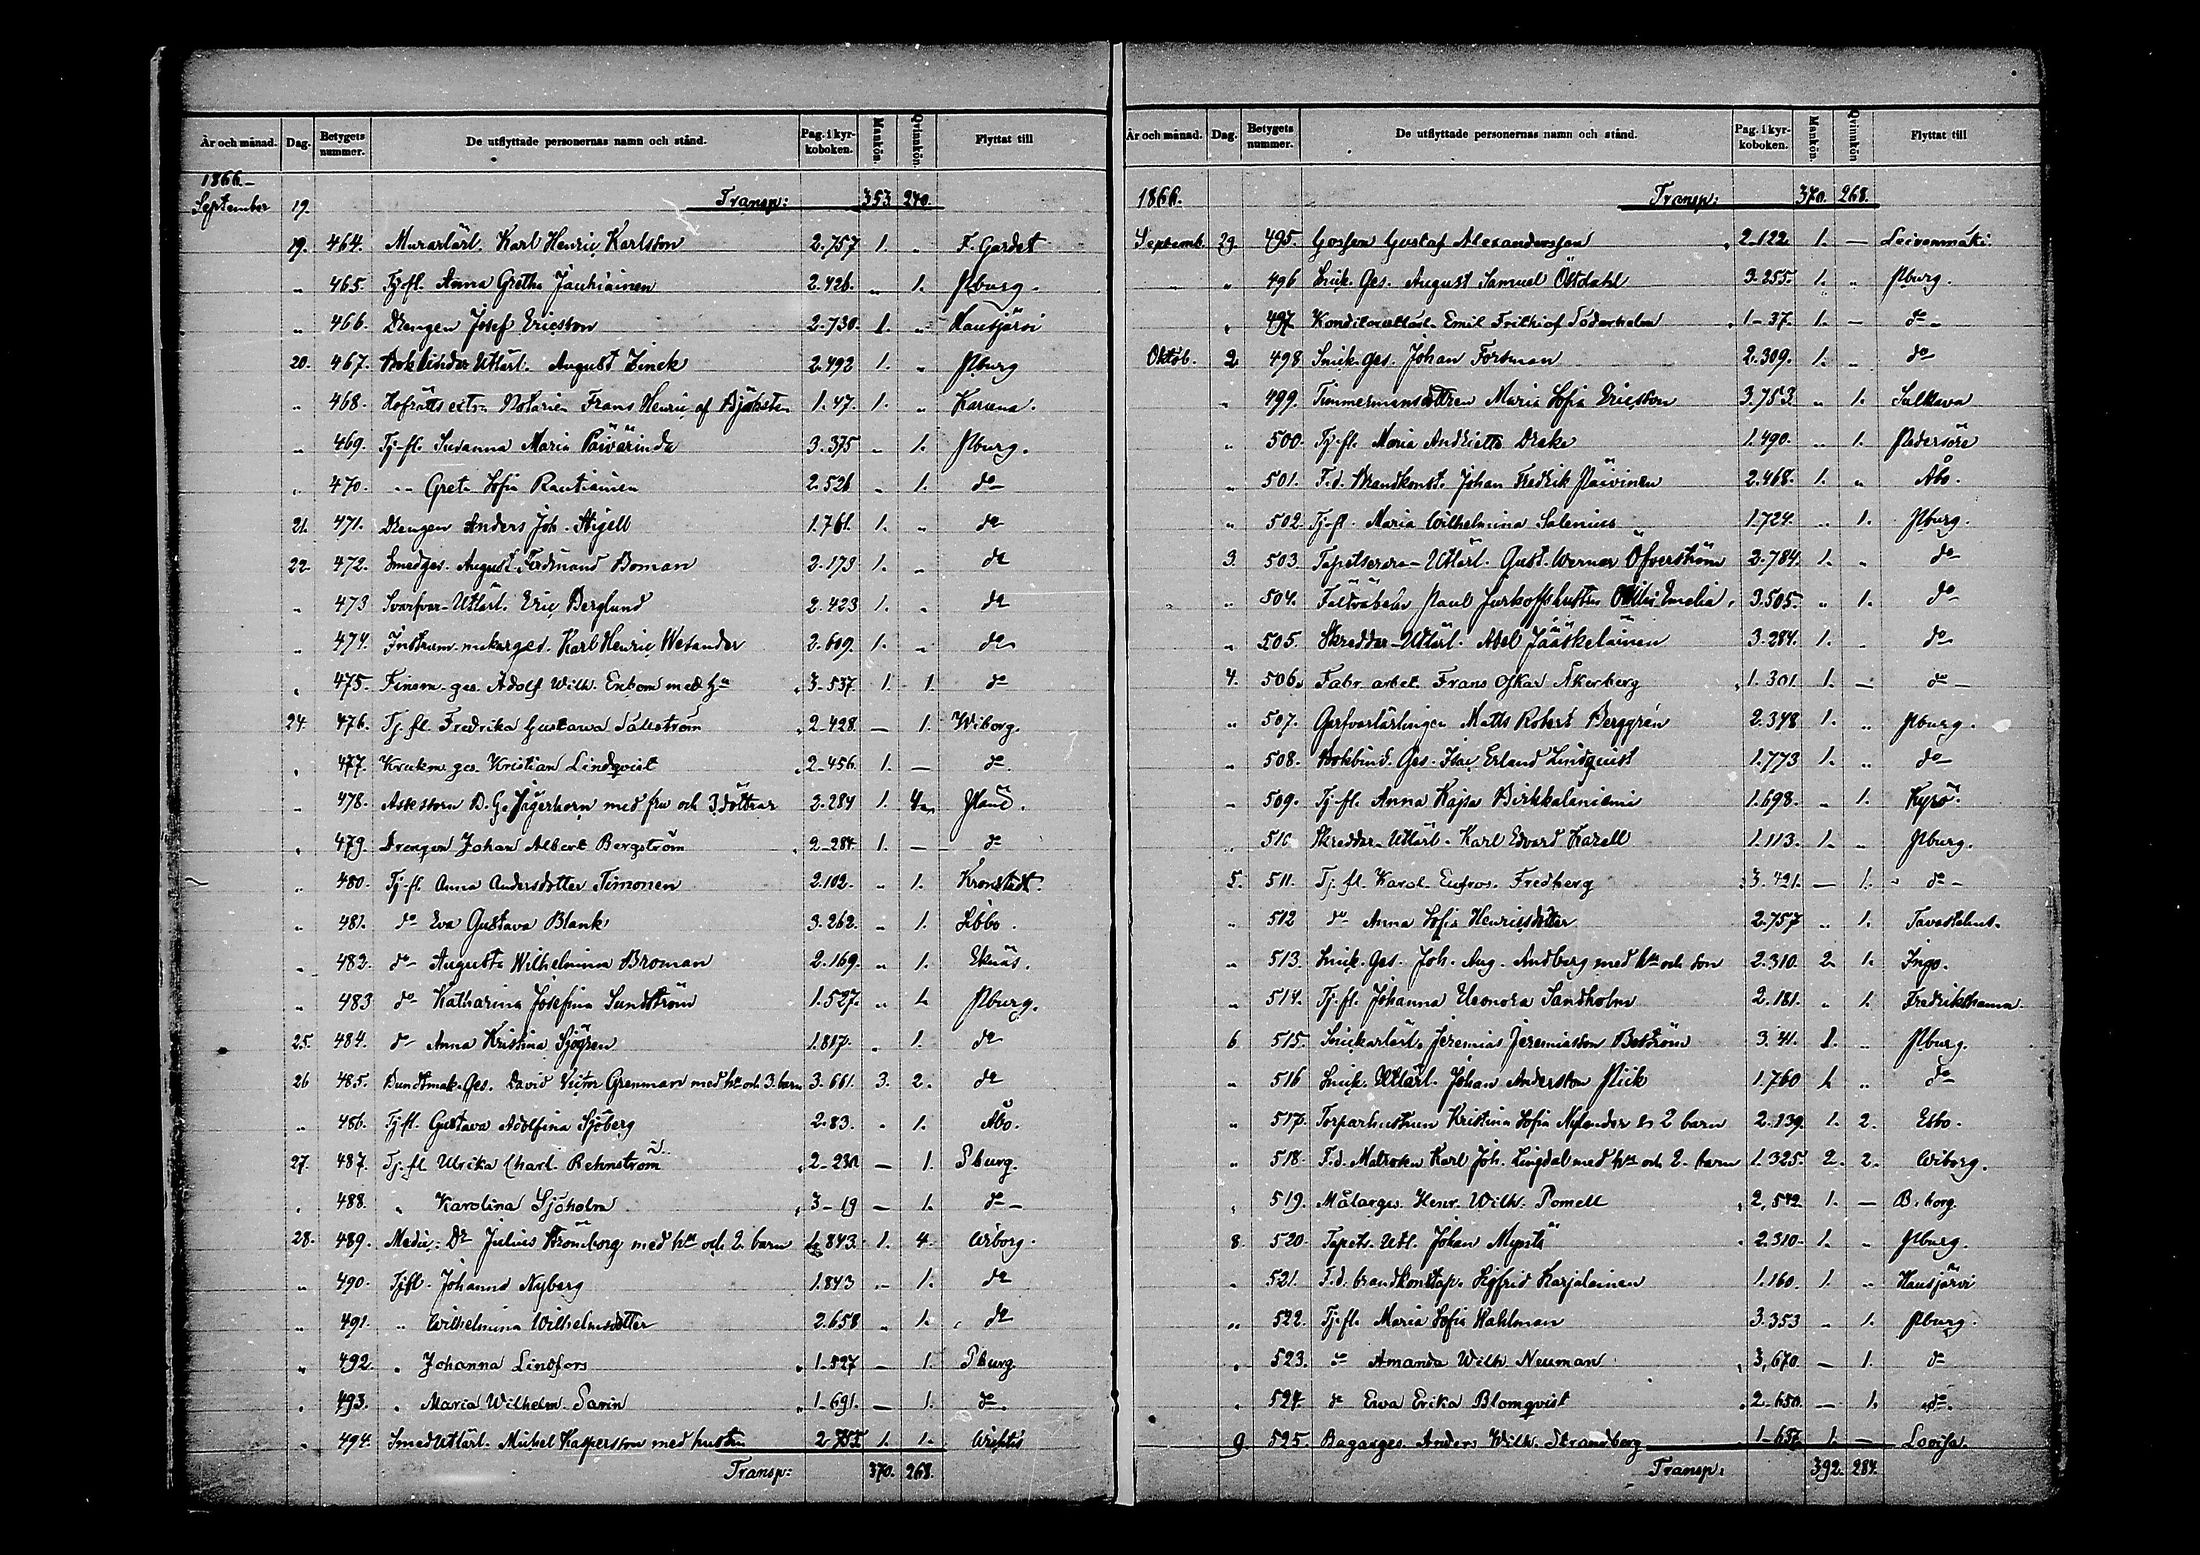 År och månad. Dag. Betygets nummer. De utflyttade personernas namn och stånd. Pag. i kyrkoboken. Mankön. Qvinnkön. Flyttat till
1866.
September 19. Transp: 353. 240.
19. 464. Murarlärl. Karl Henric Karlsson 2.757 1. „ F. Gardet
„ 465. Tj-fl. Anna Greta Jauhiainen 2.426. „ 1. Pburg.
„ 466. Drengen Josef Ericsson 2.730. 1. „ Hausjärvi
20. 467. Bokbindar Utlärl. August Zinck 2.492 1. „ Pburg
„ 468. Hofrätts extr. Notarien Frans Henric af Björksten 1.47. 1. „ Karuna.
„ 469. Tj-fl. Susanna Maria Päivärinda 3.375 „ 1. Pburg.
„ 470. „ Greta Sofia Rautiainen 2.526 „ 1. do
21. 471. Drengen Anders Joh. Stigell 1.761. 1. „ do
22. 472. Smedges. August Ferdinand Boman 2.173 1. „ do
„ 473 Svarfvar-Utlärl. Eric Berglund 2.423 1. „ do
„ 474. Instrum. makarges. Karl Henric Wetander 2.609. 1. „ do
„ 475. Finsm. ges. Adolf Wilh. Enbom med hu 3-537. 1. 1. do
24. 476. Tj. fl. Fredrika Gustawa Säleström 2-428. — 1. Wiborg.
„ 477. Krukm. ges. Kristian Lindqvist 2-456. 1. — do
„ 478. Assessorn B. G. Jägerhorn med fru och 3 döttrar 2.284 1. 4.
„ 479. Drengen Johan Albert Bergström 2-284 1. — do
„ 480. Tj-fl. Anna Andersdotter Timonen 2.102. „ 1. Kronstadt.
„ 481. do Eva Gustava Blank 3.262. „ 1. Sibbo.
„ 482. do Augusta Wilhelmina Broman 2.169. „ 1. Eknäs.
„ 483 do Katharina Josefina Sundström 1.527. „ 1. Pburg.
25 484. do Anna Kristina Sjögren 1.817. „ 1. do
26 485. Bundtmak. Ges. David Victor Grenman med hu och 3. barn 3.661. 3. 2. do
„ 486. Tj-fl. Gustava Adolfina Sjöberg 2.83. „ 1. Åbo.
27. 487. Tj. fl. Ulrika Charl. Rehnström 2-230 — 1. Pburg.
„ 488. „ Karolina Sjöholm 3-19 — 1. do
28. 489. Medic: Dr Julius Strömborg med hu och 2. barn 1.843. 1. 4. Wiborg.
„ 490. Tjfl. Johanna Nyberg 1.843 „ 1. do
„ 491. „ Wilhelmina Wilhelmsdotter 2.658 „ 1. do
„ 492. „ Johanna Lindfors 1-527 — 1. Pburg
„ 493. „ Maria Wilhelm. Sarin 1-691. — 1. do.
„ 494. Smed Utlärl. Mickel Kaspersson med hustru 2.755 1. 1. Wichtis
Transp: 370. 268.
År och månad. Dag. Betygets nummer. De utflyttade personernas namn och stånd. Pag. i kyrkoboken. Mankön. Qvinnkön Flyttat till
1866. Transp: 370. 268.
Septemb. 29. 495. Gossen Gustaf Alexandersson 2-122 1. — Leivonmäki.
„ 496 Snick. Ges. August Samuel Östdahl 3.255. 1. „ Pburg.
„ 497 Konditorutlärl. Emil Frithiof Söderholm 1-37. 1. — do
Oktob. 2 498 Snick. ges. Johan Forsman 2.309. 1. „ do
„ 499. Timmermansdottren Maria Sofia Ericsson 3.753. „ 1. Sulkava
„ 500. Tj-fl. Maria Andrietta Drake 1.490. „ 1. Pedersöre
„ 501. F.d. Brandkonst. Johan Fredrik Päivinen 2.468. 1. „ Åbo.
„ 502. Tj-fl. Maria Wilhelmina Salenius 1.724. „ 1. Pburg.
3. 503. Tapetserare-Utlärl. Gust. Werner Öfverström 2.784. 1. „ do
„ 504. Fältväbeln Paul Jurkoffs hustru Ottilia Emelia 3.505. „ 1. do
„ 505. Skreddar-Utlärl. Abel Jääskeläinen 3.284. 1. do
4. 506. Fabr. arbet. Frans Oskar Åkerberg 1.301 1. — do
„ 507. Garfvarlärlingen Matts Robert Berggrén 2.348 1. „ Pburg.
„ 508. Bokbind. Ges. Isac Erland Lindquist 1.773 1. „ do
„ 509. Tj-fl. Anna Kajsa Birkkalaniemi 1.698. „ 1. Kyrö.
„ 510 Skreddar-Utlärl. Karl Edvard Hazell 1.113. 1. „ Pburg.
5. 511. Tj. fl. Karol. Eufros. Fredberg 3.421. — 1. do
„ 512 do Anna Sofia Henricsdotter 2.757 „ 1. Tavastehus.
„ 513. Snick. Ges. Joh. Aug. Andberg med hu och son 2.310. 2. 1. Ingo.
„ 514. Tj-fl. Johanna Eleonora Sandholm 2.181. „ 1. Fredrikshamn.
6 515. Snickarlärl. Jeremias Jeremiasson Boström 3.41. 1. „ Pburg.
„ 516 Snick. Utlärl. Johan Andersson Plick 1.760 1. „ do
„ 517. Torparhustrun Kristina Sofia Nylander o. 2 barn 2.139. 1. 2. Esbo.
„ 518. F.d. Matrosen Karl Joh. Lingdal med hu och 2. barn 1.325. 2. 2. Wiborg.
„ 519. Målarges. Henr. Wilh. Pomell 2.542 1. — B:borg.
8. 520. Tapets. Utl. Johan Mypsta 2.310. 1. „ Pburg.
„ 521. F.d. brandkonstap. Sigfrid Karjalainen 1.160. 1. „ Hausjärvi
„ 522. Tj-fl. Maria Sofia Wahlman 3.353 „ 1. Pburg.
„ 523. do Amanda Wilh. Neuman 3,670. — 1. do
„ 524 do Ewa Erika Blomqvist 2-650. — 1. do.
9 525. Bagarges. Anders Wilh. Strandberg 1-657. 1. — Lovisa.
Transp: 392. 284.